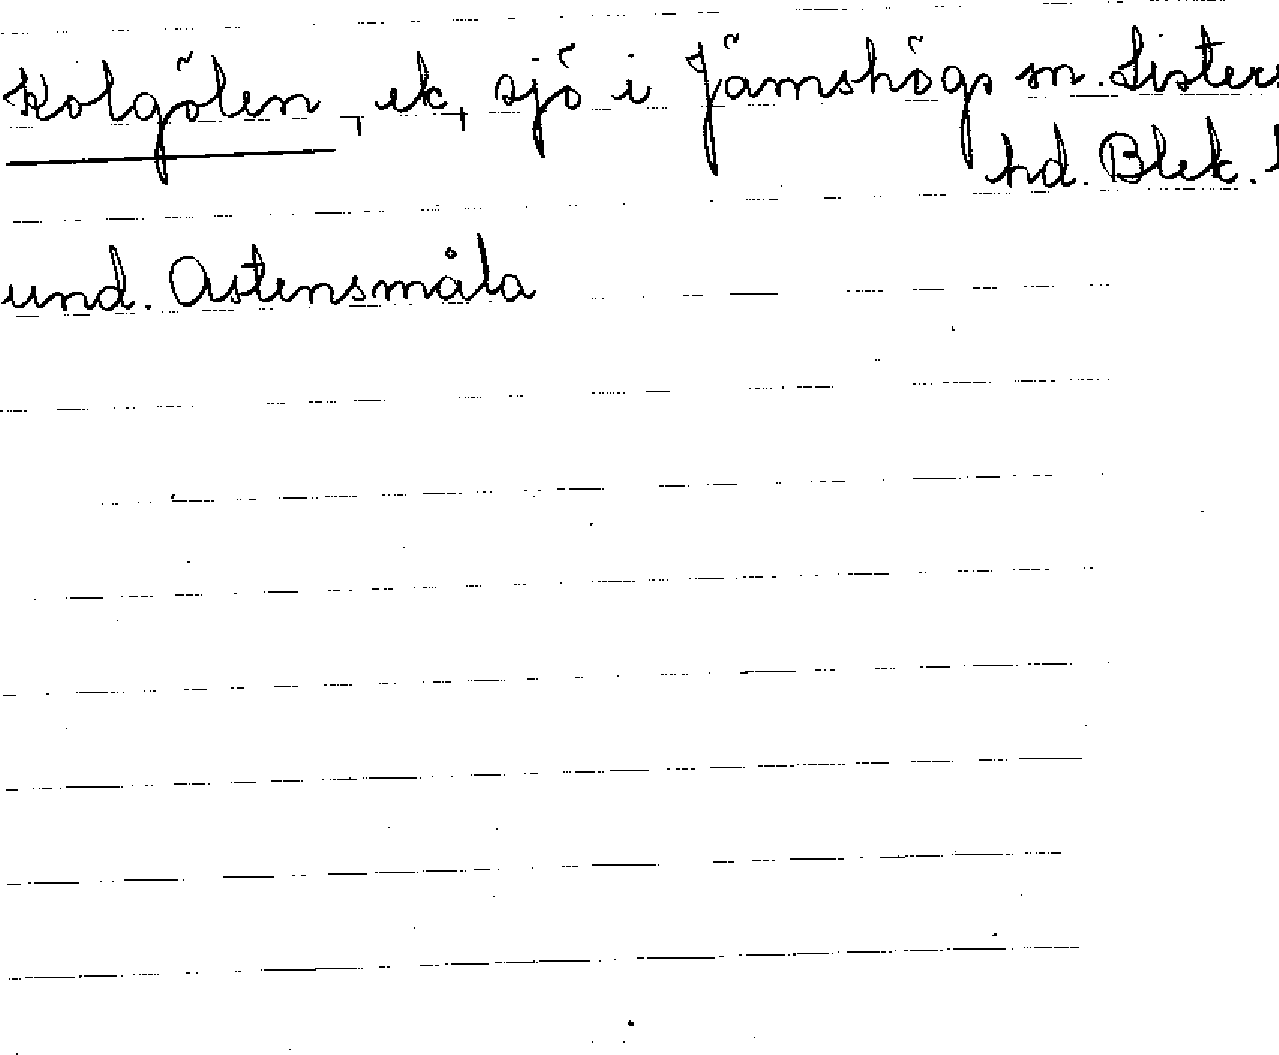 Kolgölen, ek, sjö i Jämshögs sn. Listers
hd. Blek.
und. Ostensmåla